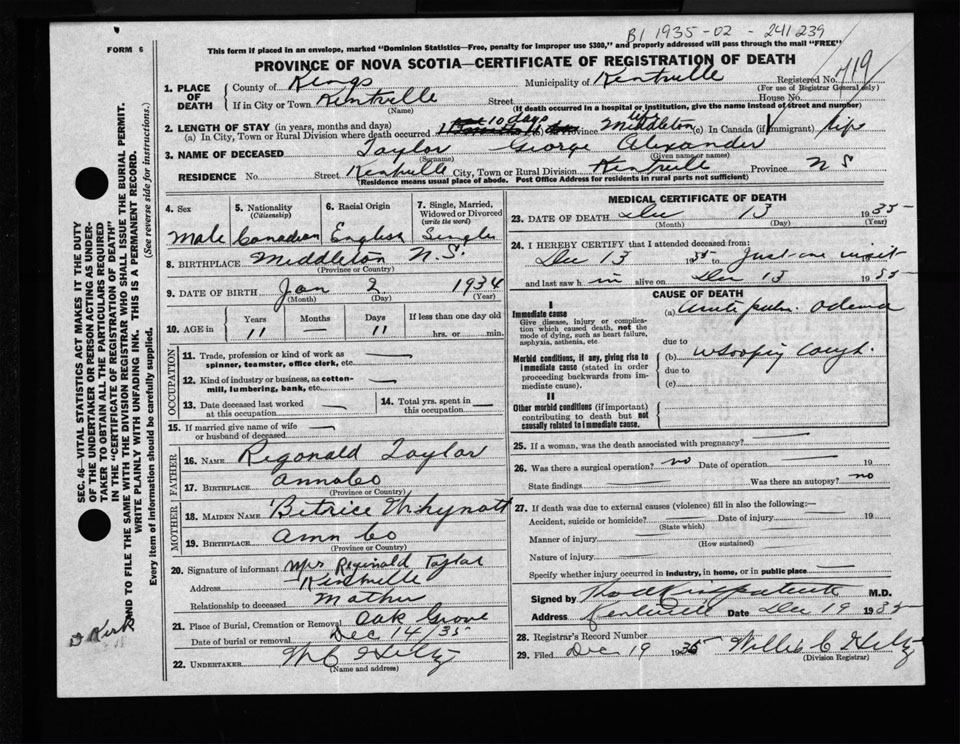 B1 1935-02-241239
FORM 6
This form if placed in an envelope, marked "Dominion Statistics—Free, penalty for improper use $300," and properly addressed will pass through the mail "FREE"
PROVINCE OF NOVA SCOTIA—CERTIFICATE OF REGISTRATION OF DEATH
1. PLACE OF DEATH County of Kings Municipality of Kentville Registered No. 419
(For use of Registrar General only)
If in City or Town Kentville Street House No.
(Name) (If death occurred in a hospital or institution, give the name instead of street and number)
2. LENGTH OF STAY (in years, months and days)
(a) In City, Town or Rural Division where death occurred 10 days Province Middleton (c) In Canada (if immigrant) life
3. NAME OF DECEASED Taylor George Alexander
(Surname) (Given name or names)
RESIDENCE No. Street Kentville City, Town or Rural Division Kentville Province N S
(Residence means usual place of abode. Post Office Address for residents in rural parts not sufficient)
4. Sex 5. Nationality (Citizenship) 6. Racial Origin 7. Single, Married, Widowed or Divorced (write the word)
Male Canadian English Single
8. BIRTHPLACE Middleton N.S.
(Province or Country)
9. DATE OF BIRTH Jan 2 1934
(Month) (Day) (Year)
10. AGE in Years Months Days If less than one day old
11 — 11 hrs. or min.
OCCUPATION
11. Trade, profession or kind of work as spinner, teamster, office clerk, etc. —
12. Kind of industry or business, as cotton-mill, lumbering, bank, etc. —
13. Date deceased last worked at this occupation — 14. Total yrs. spent in this occupation —
15. If married give name of wife or husband of deceased —
FATHER
16. NAME Regonald Taylor
17. BIRTHPLACE Anna Co
(Province or Country)
MOTHER
18. MAIDEN NAME Bitrice Whynott
19. BIRTHPLACE Ann Co
(Province or Country)
20. Signature of informant Mrs Reginald Taylor
Address Kentville
Relationship to deceased Mother
21. Place of Burial, Cremation or Removal Oak Grove
Date of burial or removal Dec 14/35
22. UNDERTAKER W C Hiltz
(Name and address)
MEDICAL CERTIFICATE OF DEATH
23. DATE OF DEATH Dec 13 1935
(Month) (Day) (Year)
24. I HEREBY CERTIFY that I attended deceased from:
Dec 13 1935 to Just one visit
and last saw h im alive on Dec 13 1935
CAUSE OF DEATH
I
Immediate cause (a) Acute pulm. Odema
Give disease, injury or complication which caused death, not the mode of dying, such as heart failure, asphyxia, asthenia, etc.
due to
Morbid conditions, if any, giving rise to immediate cause (stated in order proceeding backwards from immediate cause).
(b) Whooping Cough.
due to
(c)
II
Other morbid conditions (if important) contributing to death but not causally related to immediate cause.
25. If a woman, was the death associated with pregnancy? —
26. Was there a surgical operation? no Date of operation 19
State findings — Was there an autopsy? no
27. If death was due to external causes (violence) fill in also the following:—
Accident, suicide or homicide? — Date of injury — 19
(State which)
Manner of injury —
(How sustained)
Nature of injury —
Specify whether injury occurred in industry, in home, or in public place —
Signed by M.D.
Address Kentville Date Dec 19 1935
28. Registrar's Record Number
29. Filed Dec 19 1935 Willis C Hiltz
(Division Registrar)
SEC. 46—VITAL STATISTICS ACT MAKES IT THE DUTY
OF THE UNDERTAKER OR PERSON ACTING AS UNDER-
TAKER TO OBTAIN ALL THE PARTICULARS REQUIRED
IN THE "CERTIFICATE OF REGISTRATION OF DEATH"
AND TO FILE THE SAME WITH THE DIVISION REGISTRAR WHO SHALL ISSUE THE BURIAL PERMIT.
WRITE PLAINLY WITH UNFADING INK. THIS IS A PERMANENT RECORD.
(See reverse side for instructions.)
Every item of information should be carefully supplied.